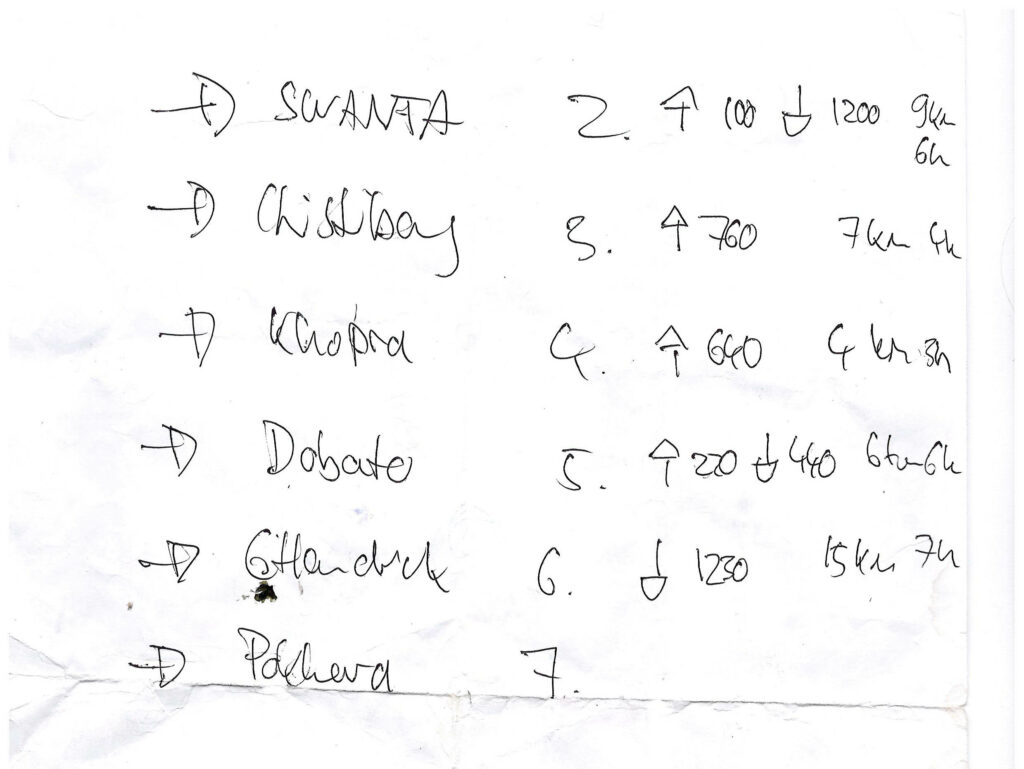 → SWANTA 2. ↑ 100 ↓ 1200 9km
6h
→ Chistibang 3. ↑ 760 7km 4h
→ Khopra 4. ↑ 640 4 km 3h
→ Dobato 5. ↑ 220 ↓ 440 6km 6h
→ 6. ↓ 1230 15km 7h
→ Pokhara 7.